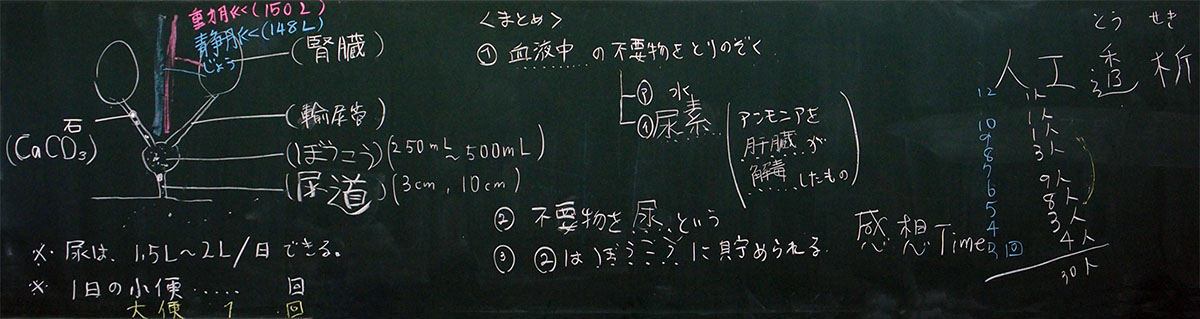 動脈(150L)
静脈(148L)
じょう
(腎臓)
(輸尿管)
石
(CaCO₃)
(ぼうこう)(250mL~500mL)
(尿道)(3cm, 10cm)
※ 尿は、1.5L~2L/日 できる。
※ 1日の小便…… 回
大便 1 回
<まとめ>
① 血液中の不要物をとりのぞく
㋐ 水
㋑ 尿素(アンモニアを
肝臓が
解毒したもの)
② 不要物を尿、という
③ ②はぼうこうに貯められる
感想Time
とう せき
人工透析
12 1人
10 1人
9 3人
8
7 9人
6 8人
5 3人
4 4人
3回
30人